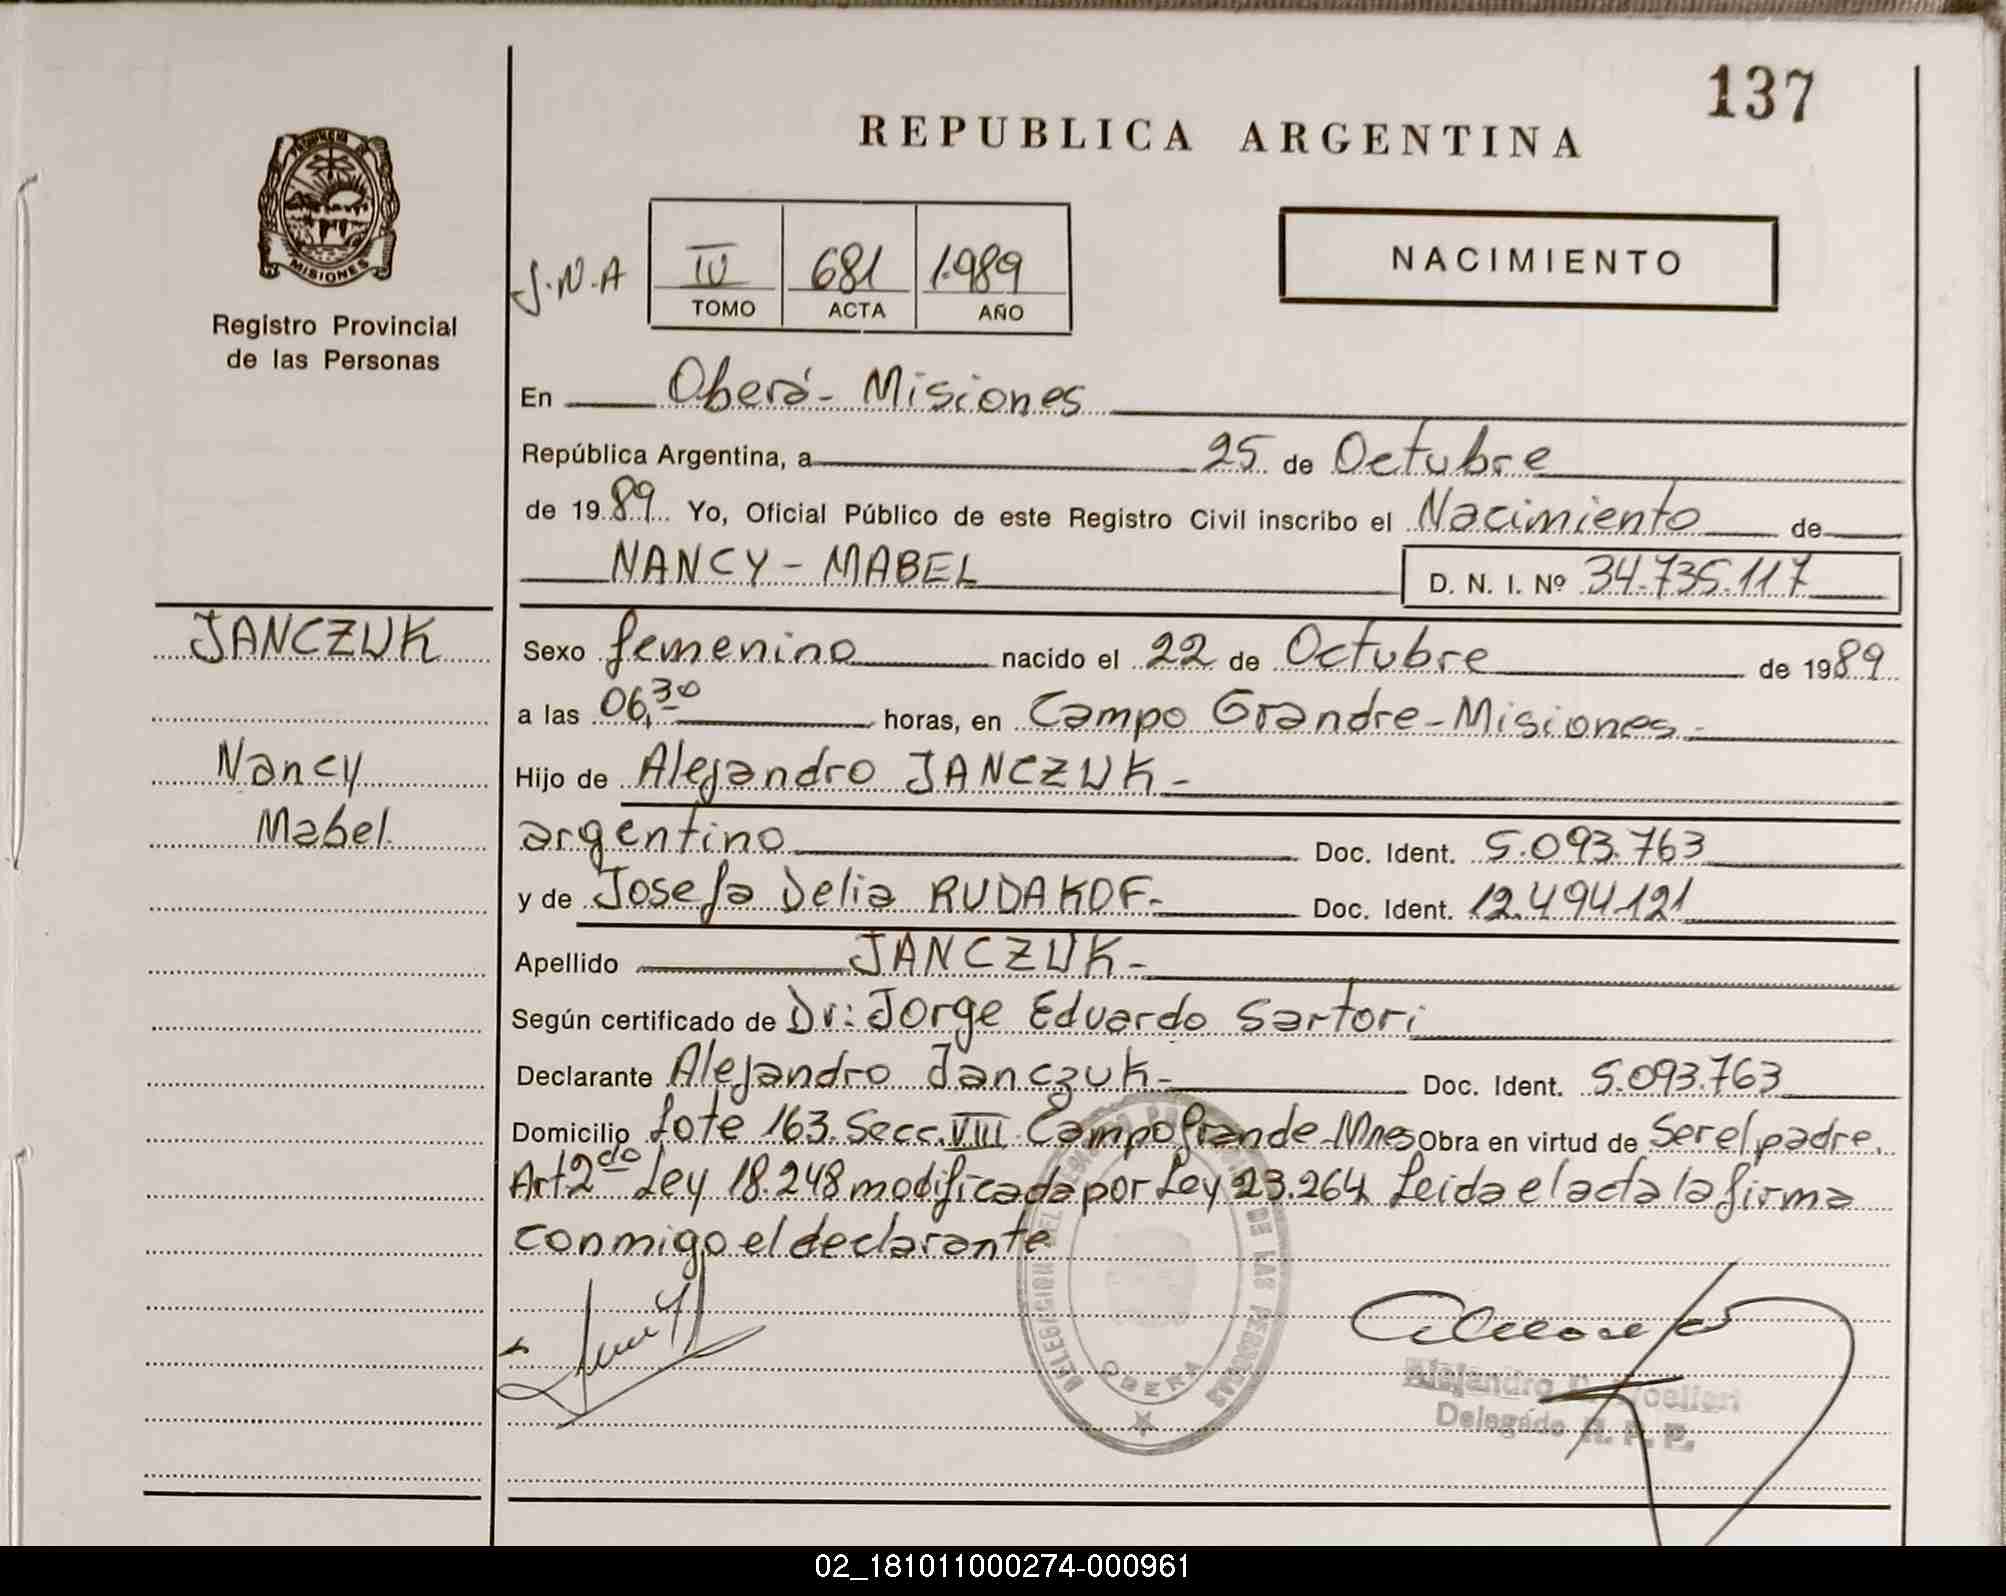 137
REPUBLICA ARGENTINA
MISIONES
Registro Provincial
de las Personas
J.N.A
IV 681 1.989
TOMO ACTA AÑO
NACIMIENTO
En Oberá - Misiones
República Argentina, a 25 de Octubre
de 1989 Yo, Oficial Público de este Registro Civil inscribo el Nacimiento de
NANCY - MABEL D. N. I. Nº 34.735.117
JANCZUK
Nancy
Mabel.
Sexo femenino nacido el 22 de Octubre de 1989
a las 06,30 horas, en Campo Grandre - Misiones.
Hijo de Alejandro JANCZUK -
argentino Doc. Ident. 5.093.763
y de Josefa Delia RUDAKOF. Doc. Ident. 12.494.121
Apellido JANCZUK -
Según certificado de Dr: Jorge Eduardo Sartori
Declarante Alejandro Janczuk - Doc. Ident. 5.093.763
Domicilio Lote 163. Secc. VIII Campo Grande - Mnes Obra en virtud de Ser el padre.
Art 2do Ley 18.248 modificada por Ley 23.264. Leida el acta la firma
conmigo el declarante
DELEGACION DEL DE LAS PERSONAS
OBERA
Alejandro
Delegado R. P. P.
02_181011000274-000961